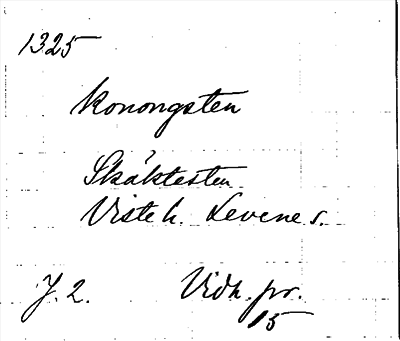 1325
Konongsten
Skäktesten
Viste h. Levene s.
J. 2. Vidh. pr.
15